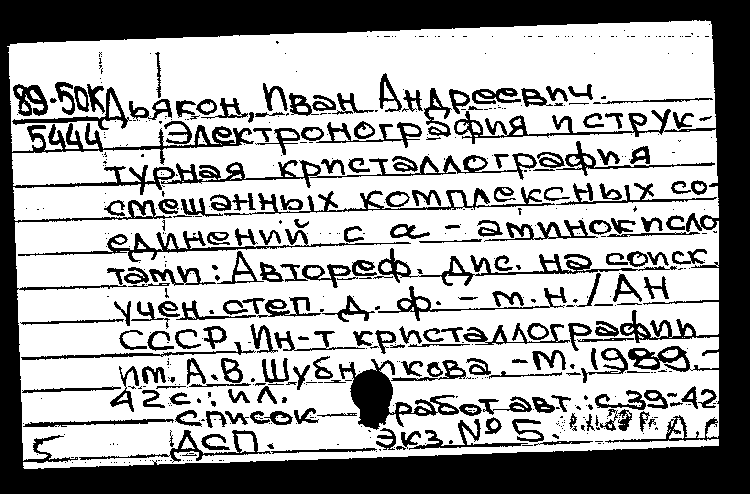 89-50К Дьякон, Иван Андреевич.
5444 Электронография и струк-
турная кристаллография
смешанных комплексных со-
единений с α - аминокисло
тами: Автореф. дис. на соиск.
учен. степ. д. ф. - м. н. / АН
СССР, Ин-т кристаллографии
им. А. В. Шубникова. - М., 1989. -
42 с.: ил.
список работ авт.: с. 39-42
5 ДСП. Экз. № 5.